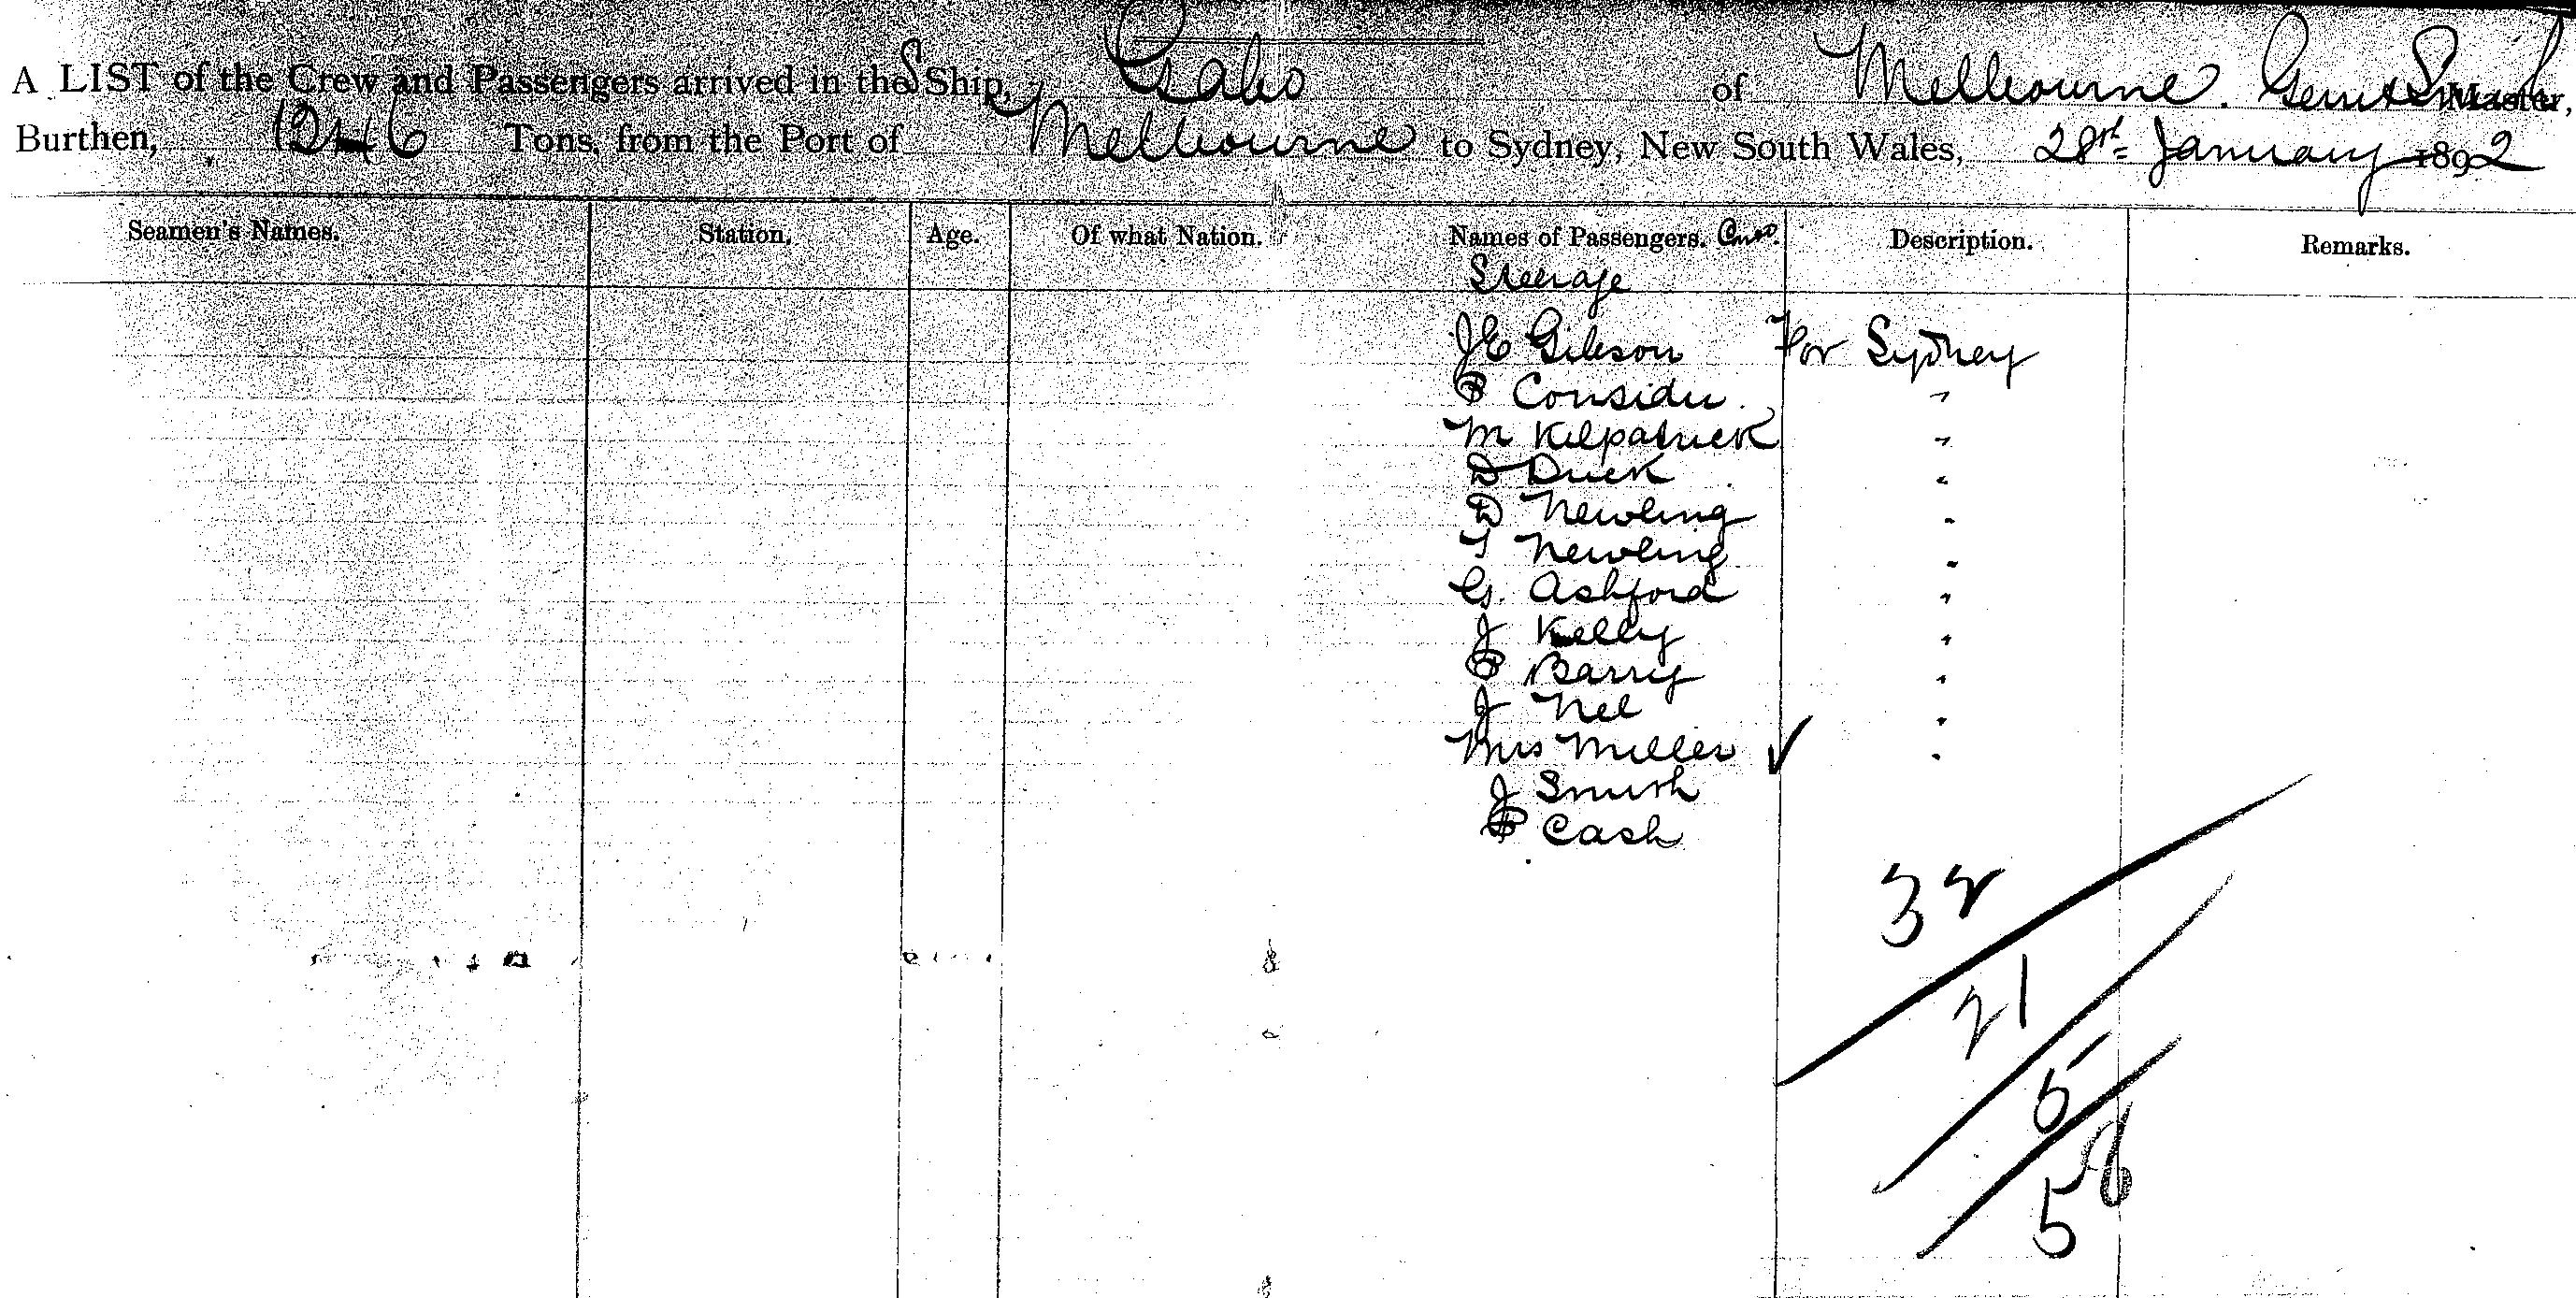 A LIST of the Crew and Passengers arrived in the S Ship, Gabo of Melbourne. Master,
Burthen, 1246 Tons, from the Port of Melbourne to Sydney, New South Wales, 28th January 1892
Seamen's Names. Station. Age. Of what Nation. Names of Passengers. Description. Remarks.
Steerage
JE Gibson For Sydney
P Considine "
M Kilpatrick "
D Duck "
D Newling "
T Newling "
G. Ashford "
J Kelly "
P Barry "
J Nel "
Mrs Miller ✓ "
J Smith
P Cash
32
21
5
58